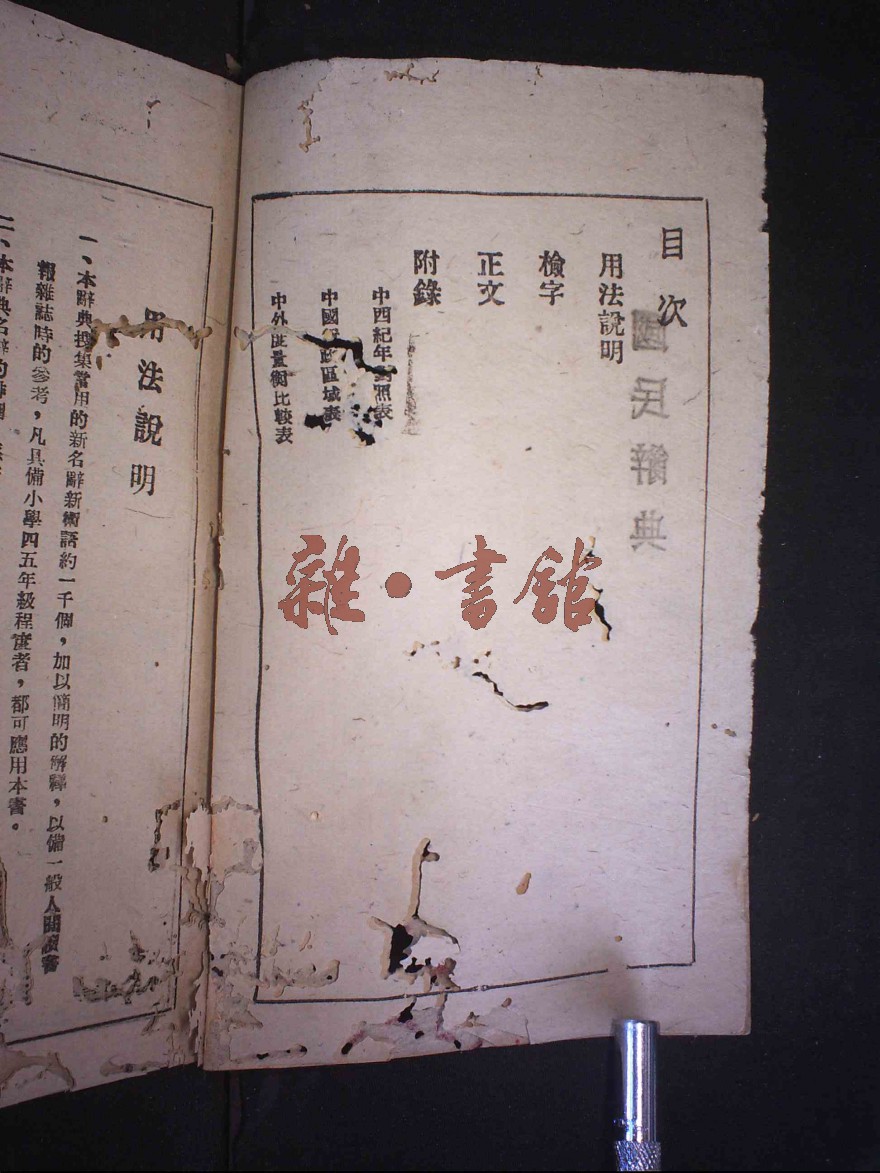 目次
用法說明
檢字
正文
附錄
中西紀年對照表
中國行政區域表
中外度量衡比較表
國民辭典
雜·書館
用法說明
一、本辭典搜集當用的新名辭新術語約一千個，加以簡明的解釋，以備一般人閱讀書
報雜誌時的參考，凡具備小學四五年級程度者，都可應用本書。
二、本辭典名辭的排列